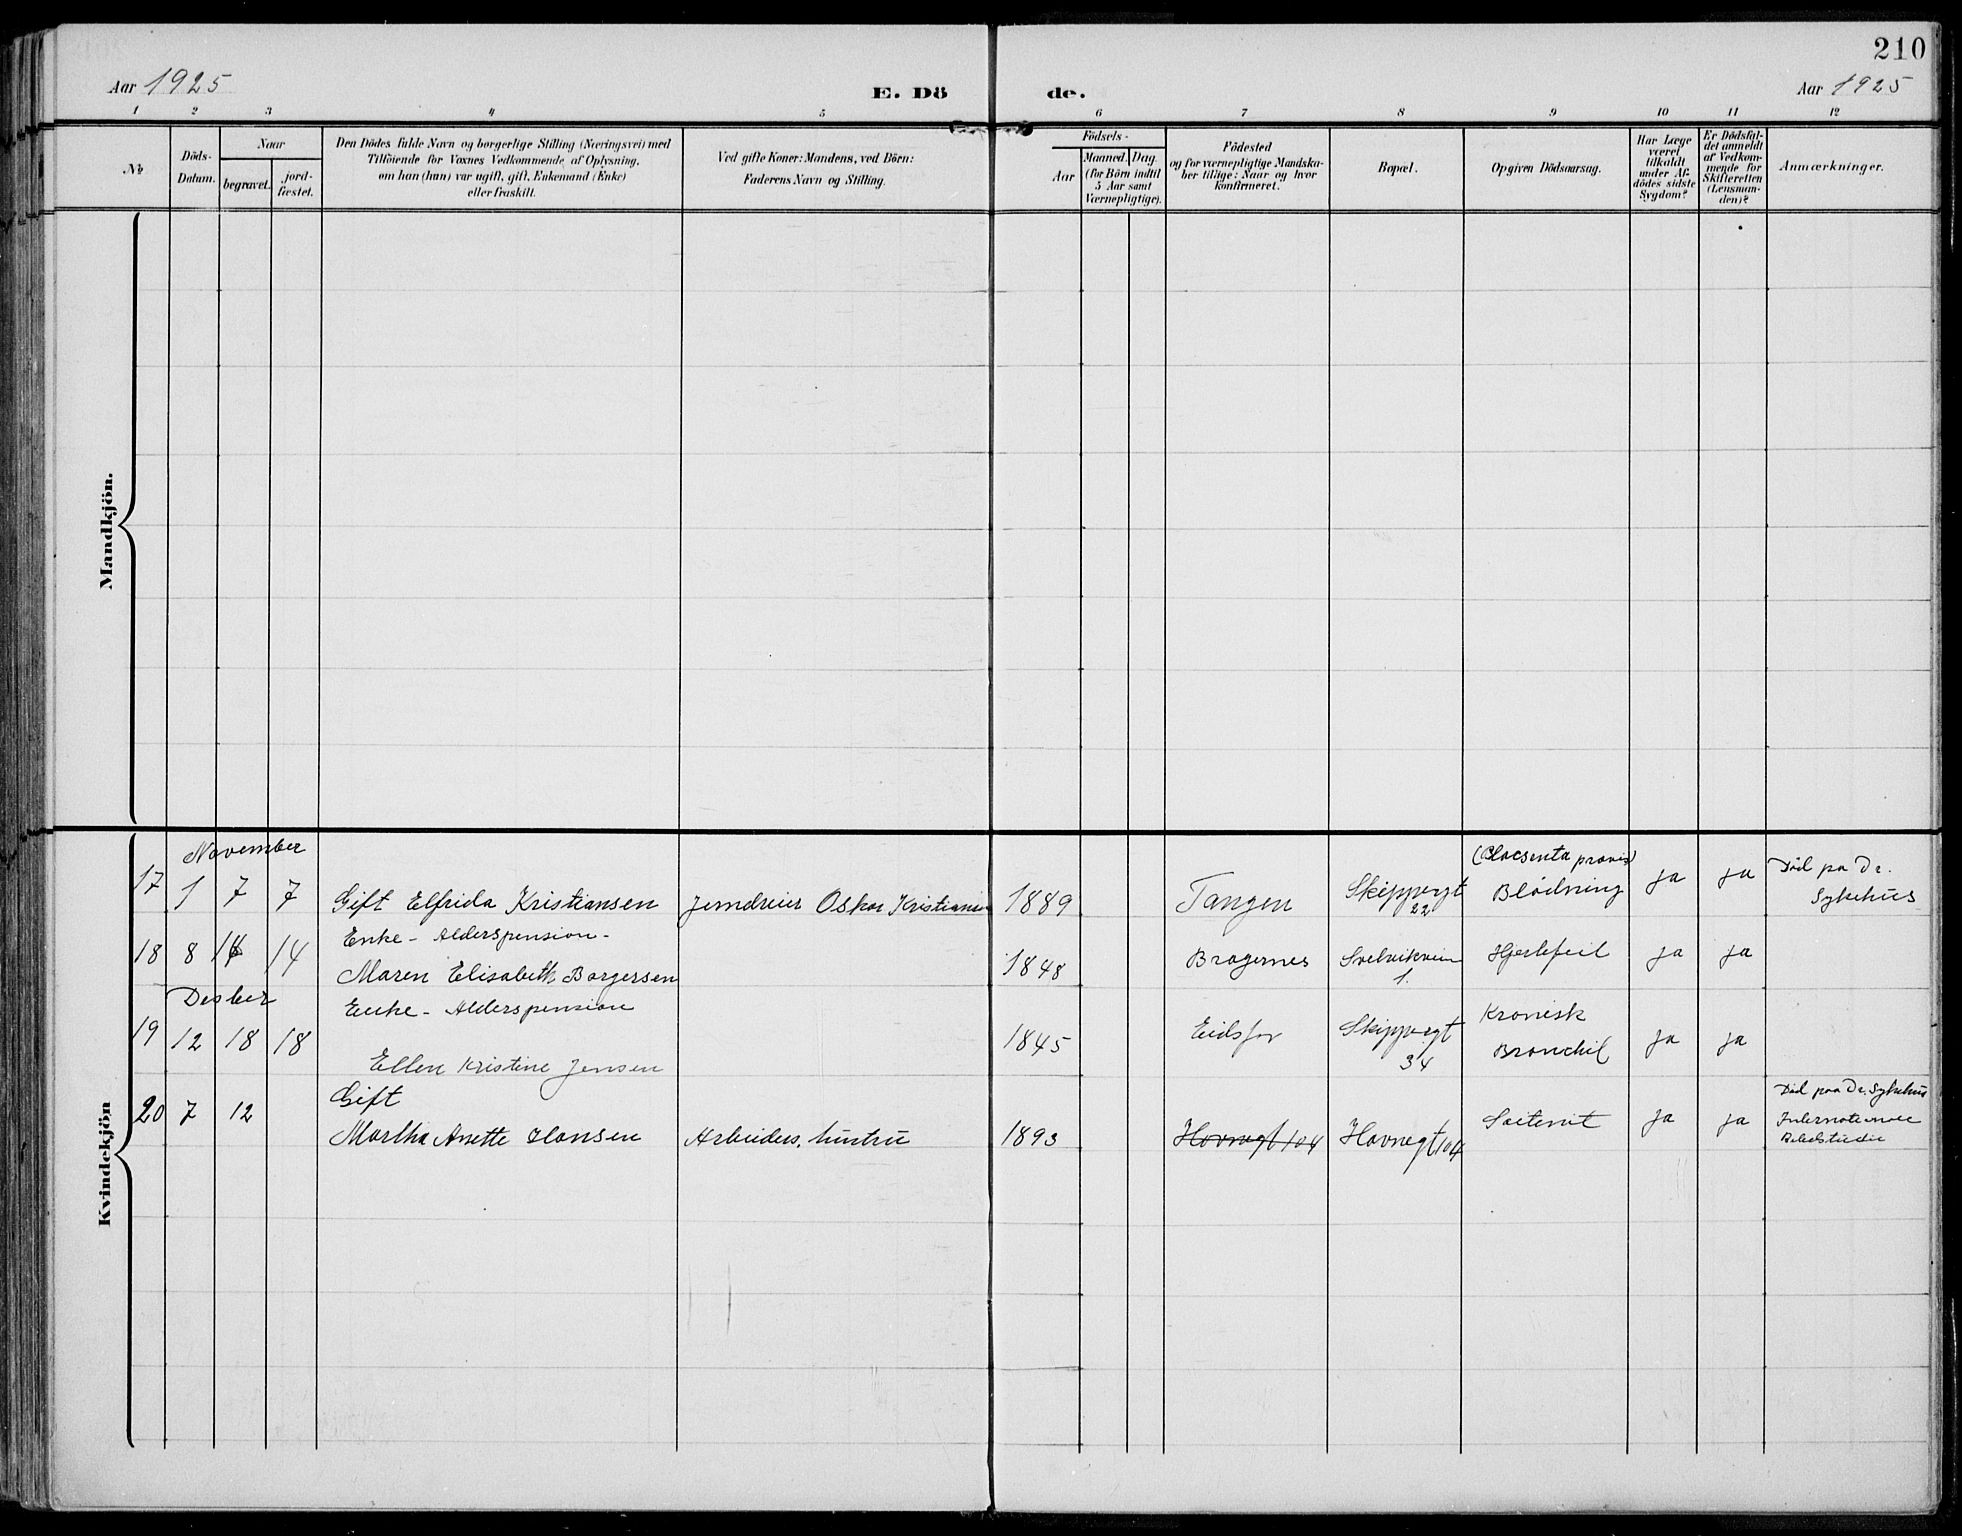 210
Aar 1925
E. Dö
de.
Aar 1925
1 2 3 4 5 6 7 8 9 10 11 12
No
Döds-
Datum.
Naar
begravet.
jord-
fæstet.
Den Dödes fulde Navn og borgerlige Stilling (Næringsvei) med
Tilföiende for Voxnes Vedkommende af Oplysning,
om han (hun) var ugift, gift, Enkemand (Enke)
eller fraskilt.
Ved gifte Koner: Mandens, ved Börn:
Faderens Navn og Stilling.
Födsels-
Aar
Maaned. Dag.
(for Börn indtil
5 Aar samt
Værnepligtige).
Födested
og for værnepligtige Mandska-
ber tillige: Naar og hvor
konfirmeret.
Bopæl.
Opgiven Dödsaarsag.
Har Læge
været
tilkaldt
under Af-
dödes sidste
Sygdom?
Er Dödsfal-
det anmeldt
af Vedkom-
mende for
Skifteretten
(Lensman-
den)?
Anmærkninger.
Mandkjön.
Kvindekjön
November
17 1 7 7 Gift Elfrida Kristiansen Jerndreier Oskar Kristiansen 1889 Tangen Skippergt
22
(Placenta prævia)
Blödning ja ja Död pa Dr.
Sykehus
Enke - Alderspension -
18 8 14 14 Maren Elisabeth Borgersen 1848 Bragernes Svelvikveien
1.
Hjertefeil ja ja
Desber
Enke - Alderspension
19 12 18 18 Ellen Kristine Jensen 1845 Eidsfos Skippergt
34
Kronisk
Bronchit ja ja
Gift
20 7 12 Martha Anette Hansen Arbeiders hustru 1893 Havnegt 104 Havnegt 104 ja ja
Död paa Dr. Sykehus